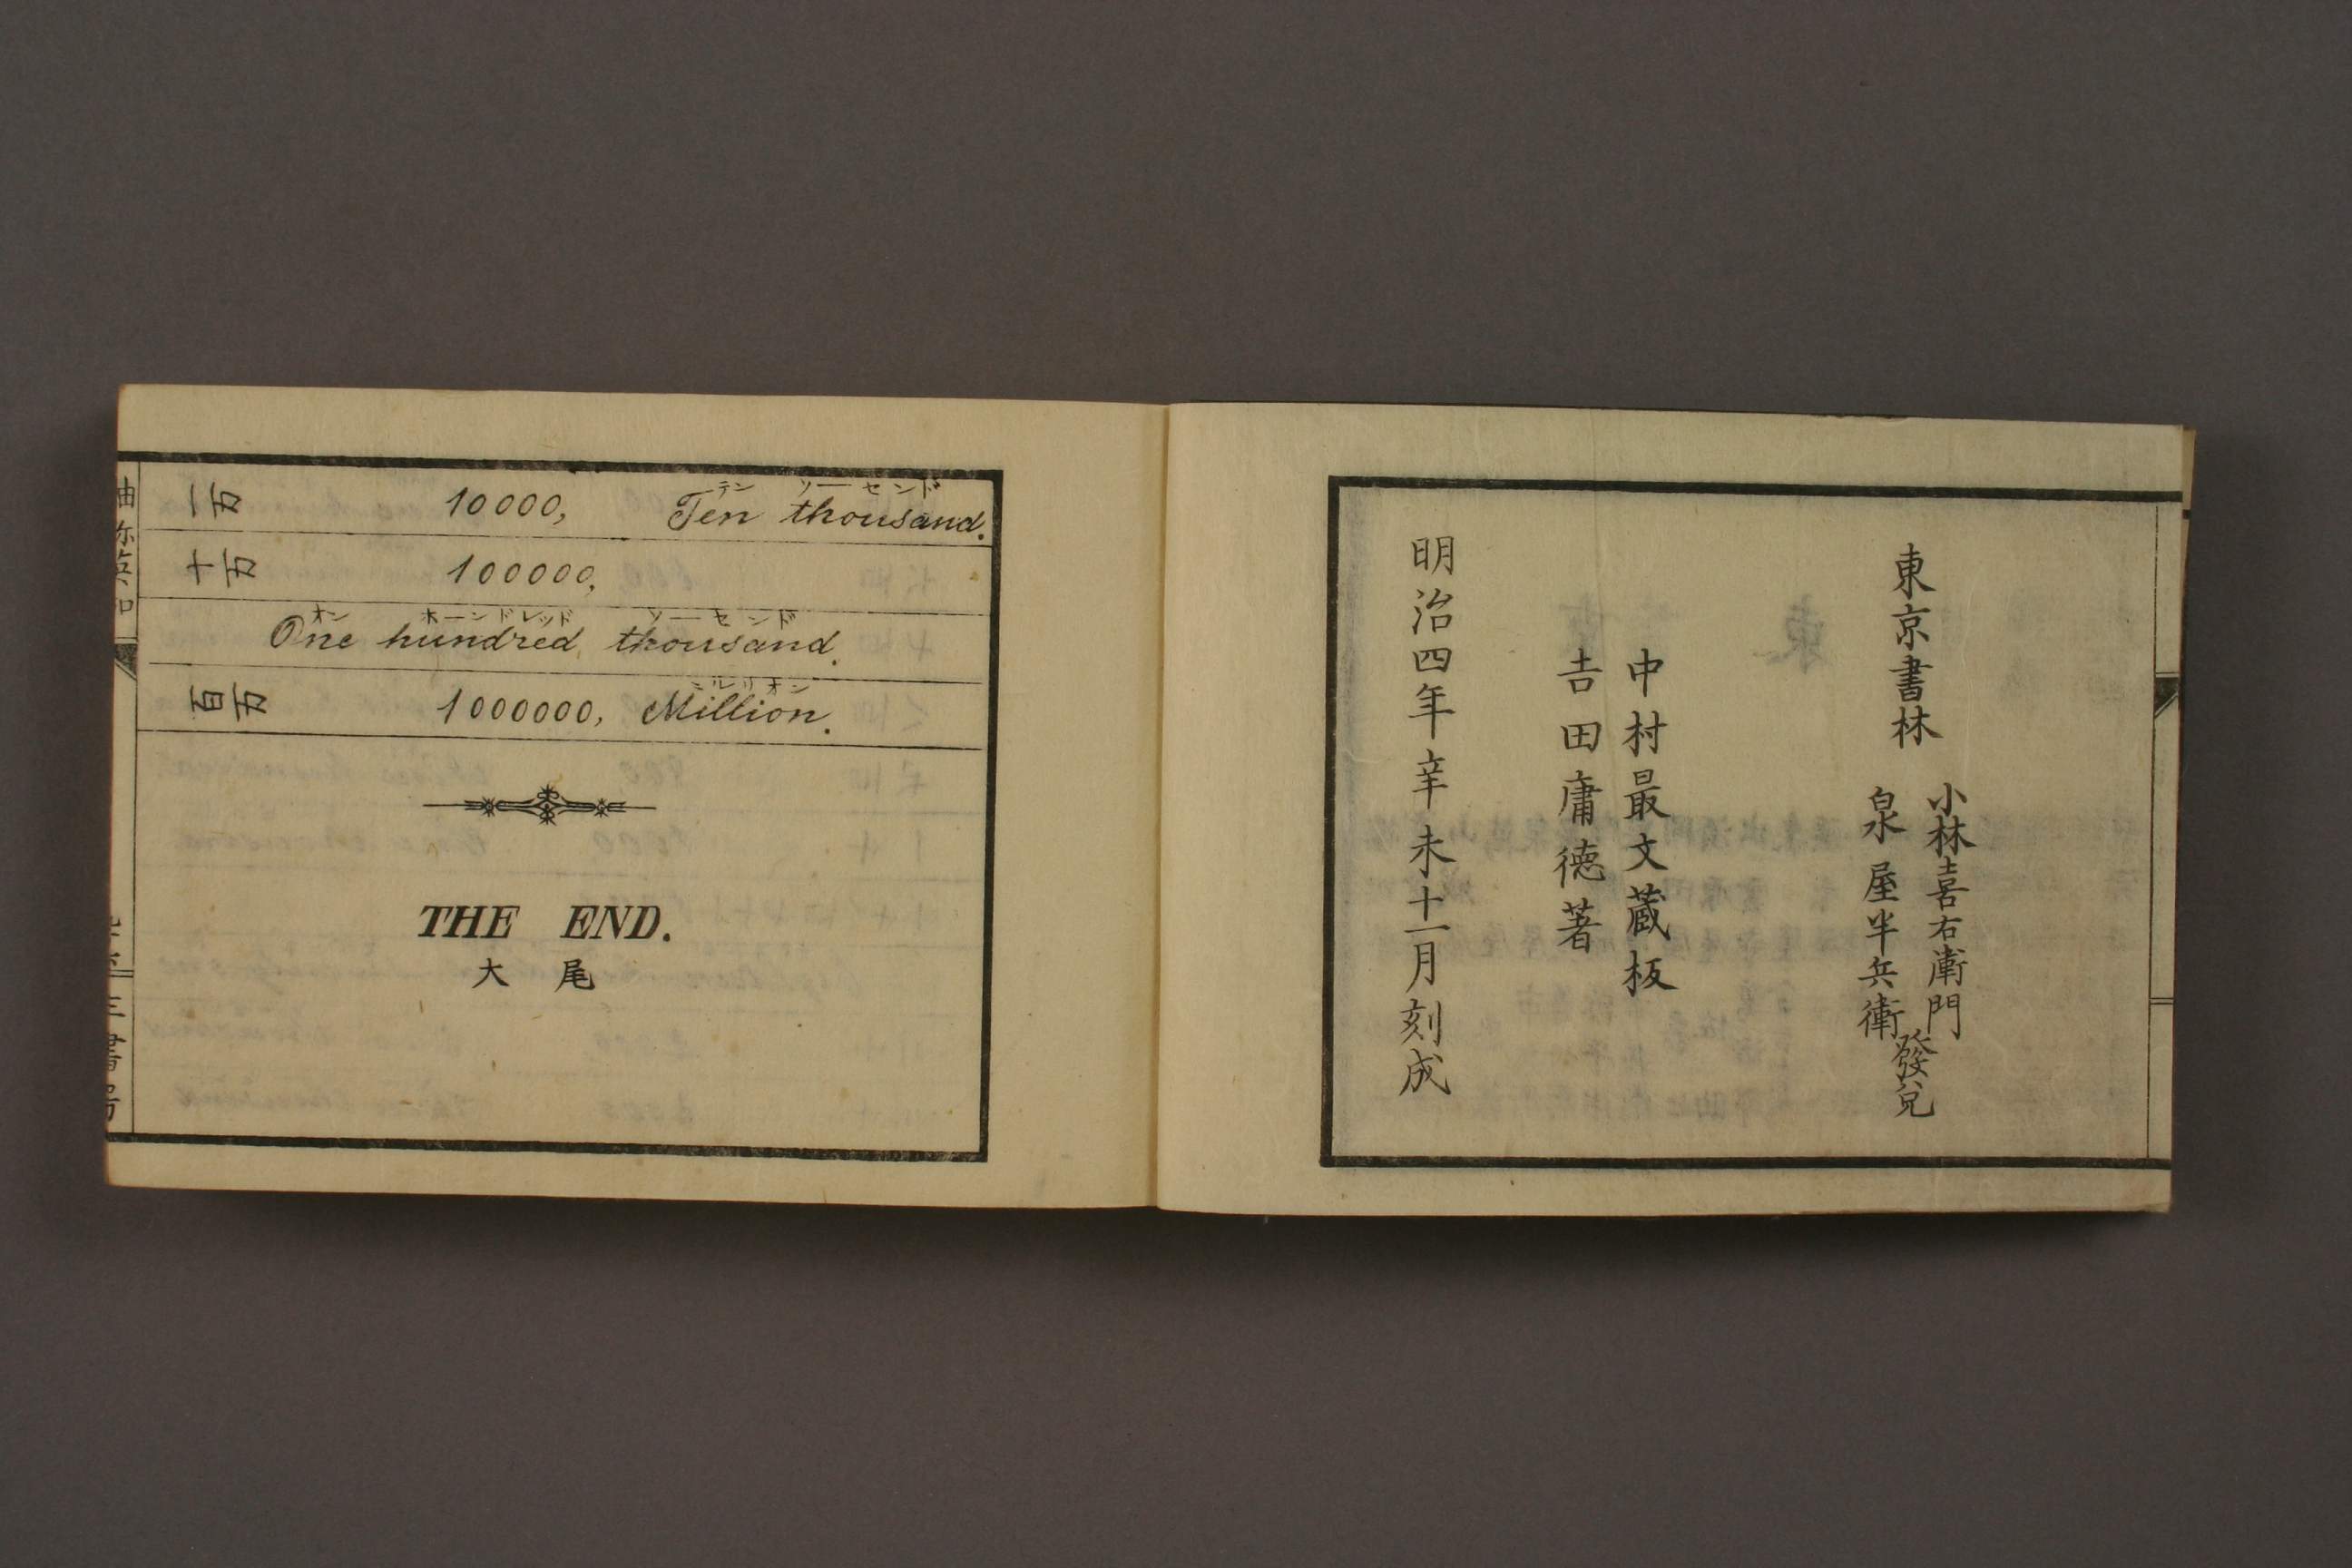 一万 10000, Ten thousand.
テン ソーセンド
十万 100000,
オン ホーンドレッド ソーセンド
One hundred thousand.
ミルリオン
百万 1000000, Million.
THE END.
大尾
東京書林
小林喜右衛門
泉屋半兵衛
發兌
中村最文蔵板
吉田庸徳著
明治四年辛未十一月刻成